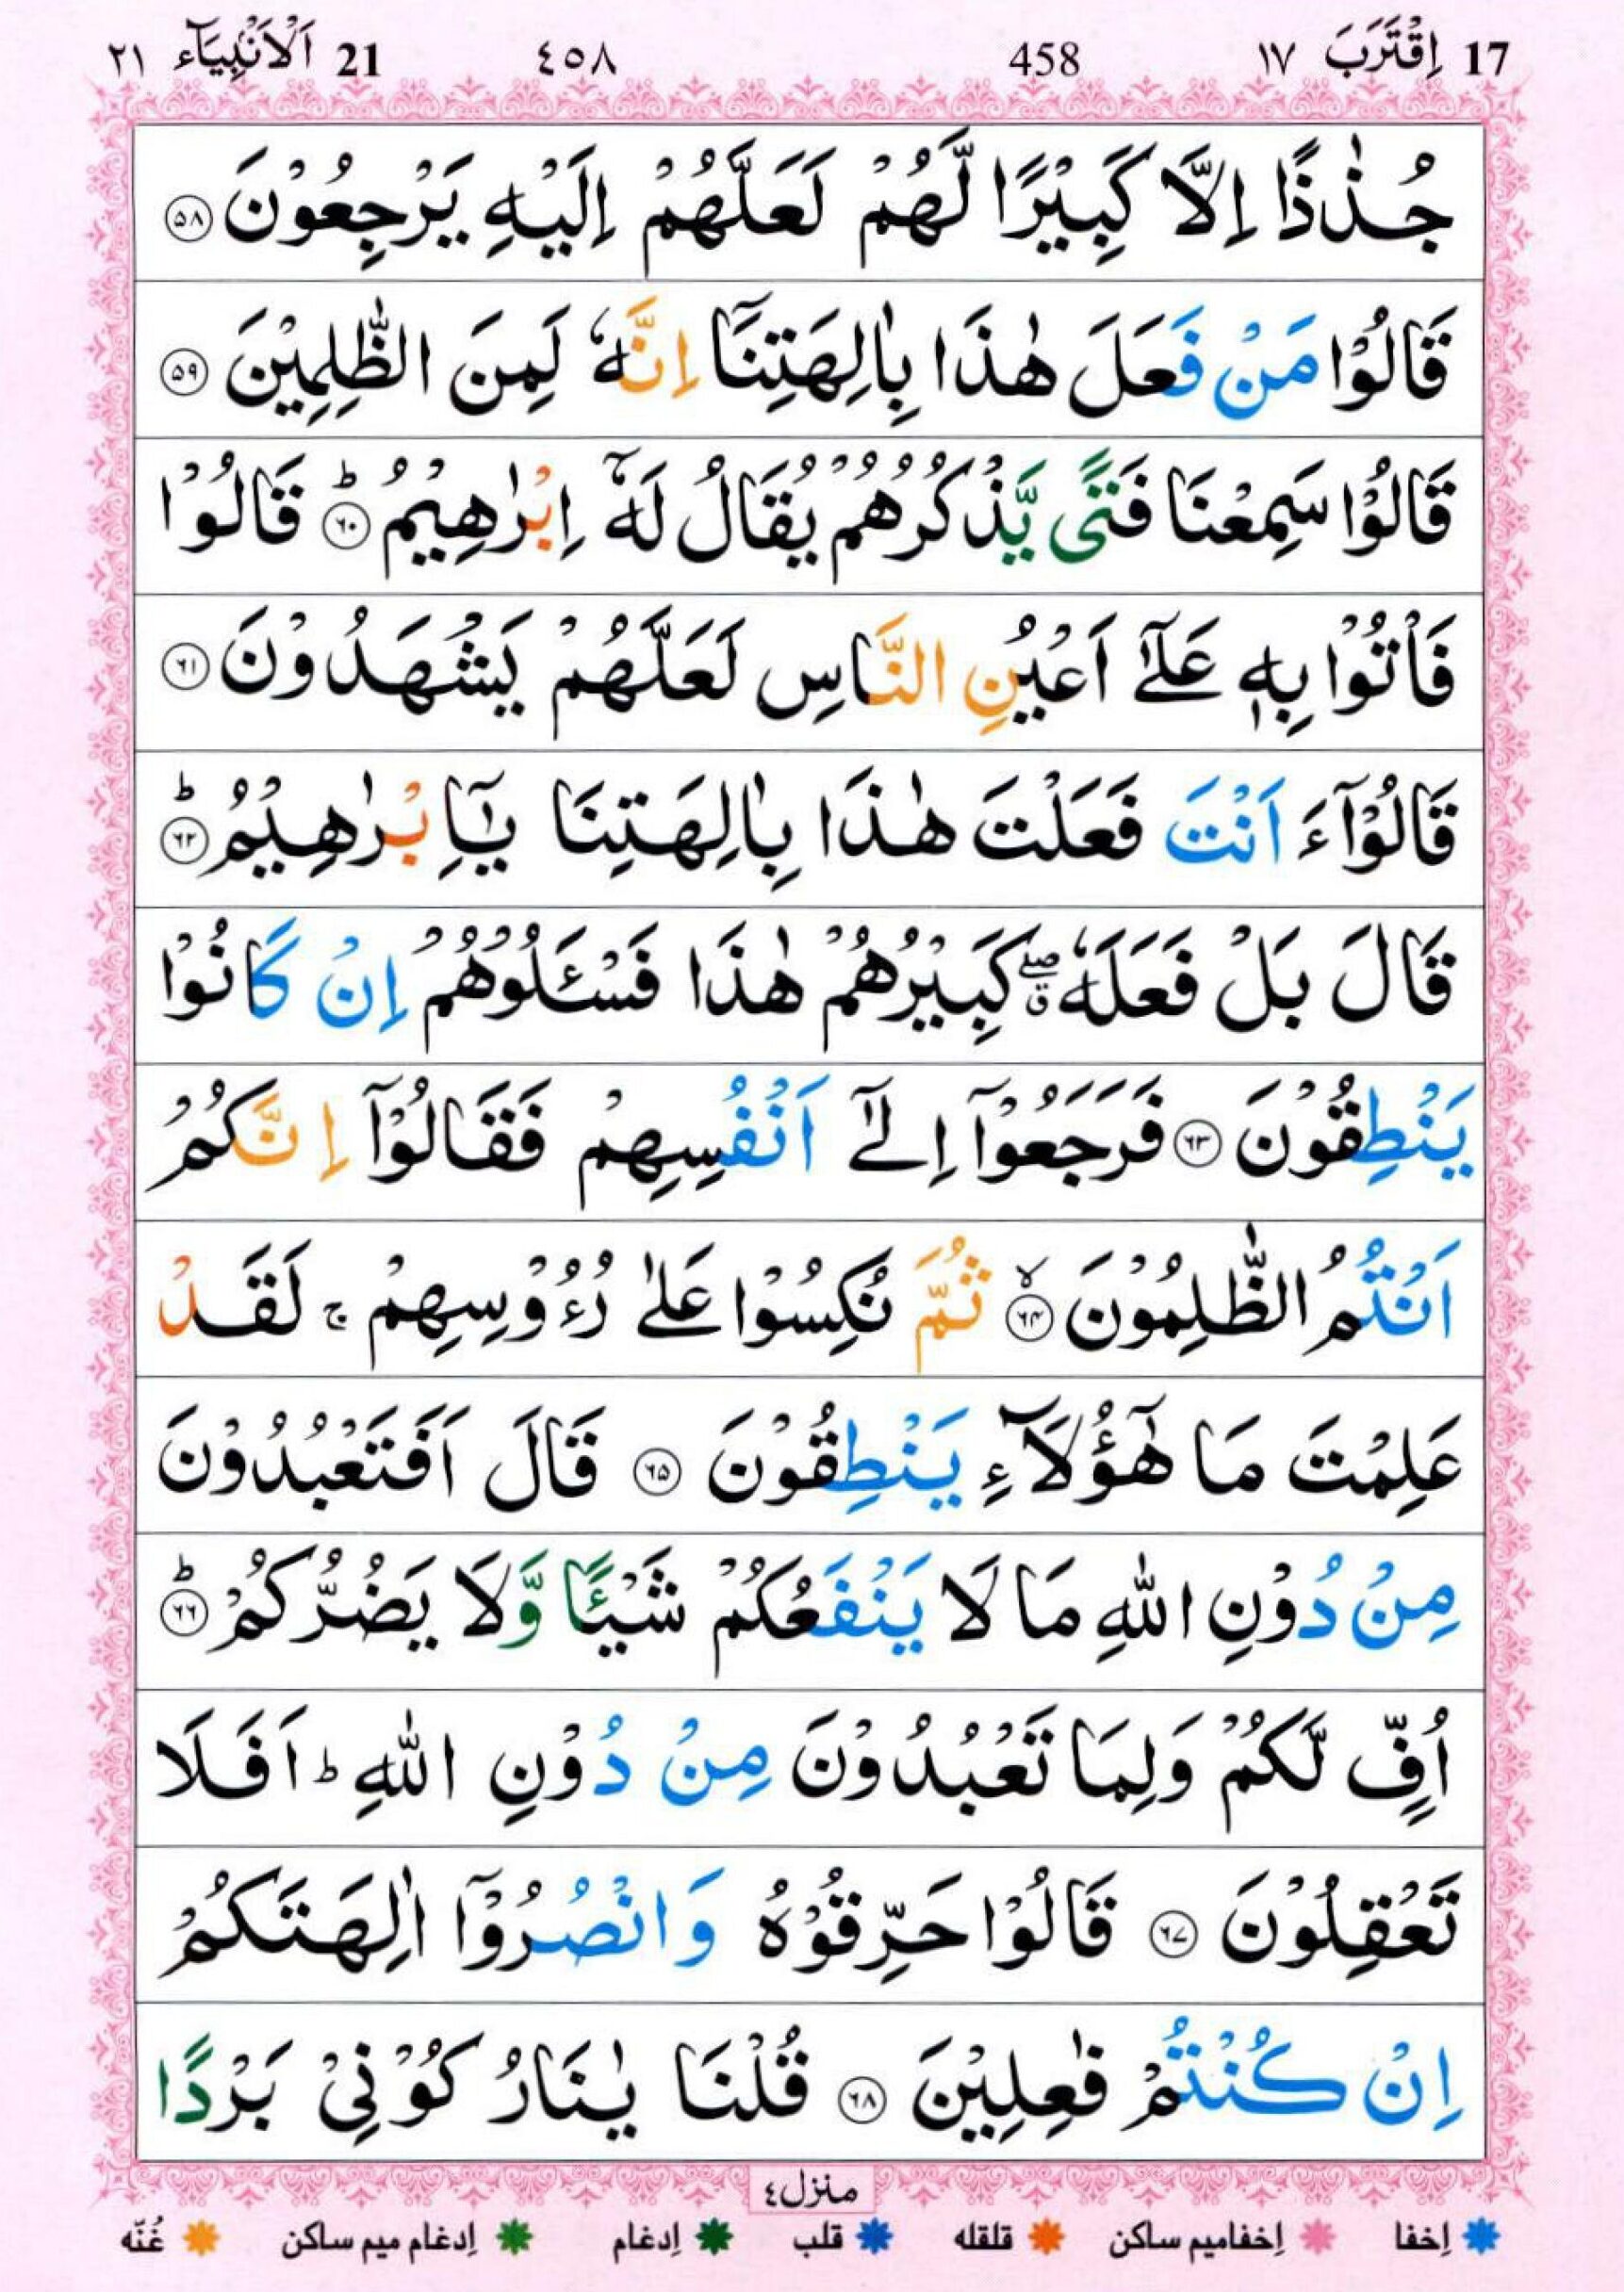 17 اِقْتَرَبَ ١٧ 458 ٤٥٨ 21 اَلْاَنْۢبِيَآء ٢١
جُذٰذًا اِلَّا كَبِيْرًا لَّهُمْ لَعَلَّهُمْ اِلَيْهِ يَرْجِعُوْنَ ۵۸
قَالُوْا مَنْ فَعَلَ هٰذَا بِاٰلِهَتِنَاۤ اِنَّهٗ لَمِنَ الظّٰلِمِيْنَ ۵۹
قَالُوْا سَمِعْنَا فَتًى يَّذْكُرُهُمْ يُقَالُ لَهٗۤ اِبْرٰهِيْمُ ؕ ۶۰ قَالُوْا
فَاْتُوْا بِهٖ عَلٰۤى اَعْيُنِ النَّاسِ لَعَلَّهُمْ يَشْهَدُوْنَ ۶۱
قَالُوْۤا ءَاَنْتَ فَعَلْتَ هٰذَا بِاٰلِهَتِنَا يٰۤاِبْرٰهِيْمُ ؕ ۶۲
قَالَ بَلْ فَعَلَهٗ ۖۗ كَبِيْرُهُمْ هٰذَا فَسْـَٔلُوْهُمْ اِنْ كَانُوْا
يَنْطِقُوْنَ ۶۳ فَرَجَعُوْۤا اِلٰۤى اَنْفُسِهِمْ فَقَالُوْۤا اِنَّكُمْ
اَنْتُمُ الظّٰلِمُوْنَ ۙ ۶۴ ثُمَّ نُكِسُوْا عَلٰى رُءُوْسِهِمْ ۚ لَقَدْ
عَلِمْتَ مَا هٰۤؤُلَآءِ يَنْطِقُوْنَ ۶۵ قَالَ اَفَتَعْبُدُوْنَ
مِنْ دُوْنِ اللّٰهِ مَا لَا يَنْفَعُكُمْ شَيْـًٔا وَّلَا يَضُرُّكُمْ ؕ ۶۶
اُفٍّ لَّكُمْ وَلِمَا تَعْبُدُوْنَ مِنْ دُوْنِ اللّٰهِ ؕ اَفَلَا
تَعْقِلُوْنَ ۶۷ قَالُوْا حَرِّقُوْهُ وَانْصُرُوْۤا اٰلِهَتَكُمْ
اِنْ كُنْتُمْ فٰعِلِيْنَ ۶۸ قُلْنَا يٰنَارُ كُوْنِيْ بَرْدًا
منزل ٤
اِخفا اِخفامیم ساکن قلقله قلب اِدغام اِدغام میم ساکن غُنّه